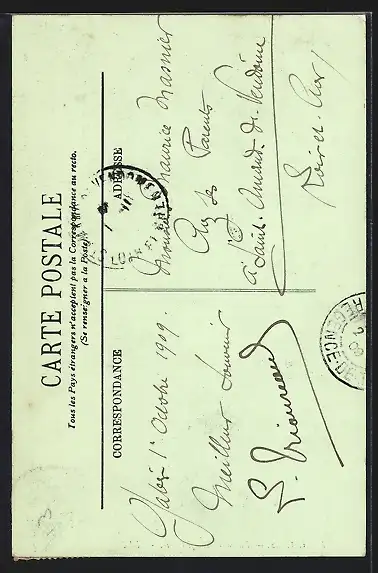 CARTE POSTALE
Tous les Pays étrangers n'acceptent pas la Correspondance au recto.
(Se renseigner à la Poste)
CORRESPONDANCE
1er Octobre 1909.
Meilleur Souvenir
ADRESSE
Monsieur Maurice
Chez ses Parents
à Saint-Amand-de-Vendôme
Loir et Cher